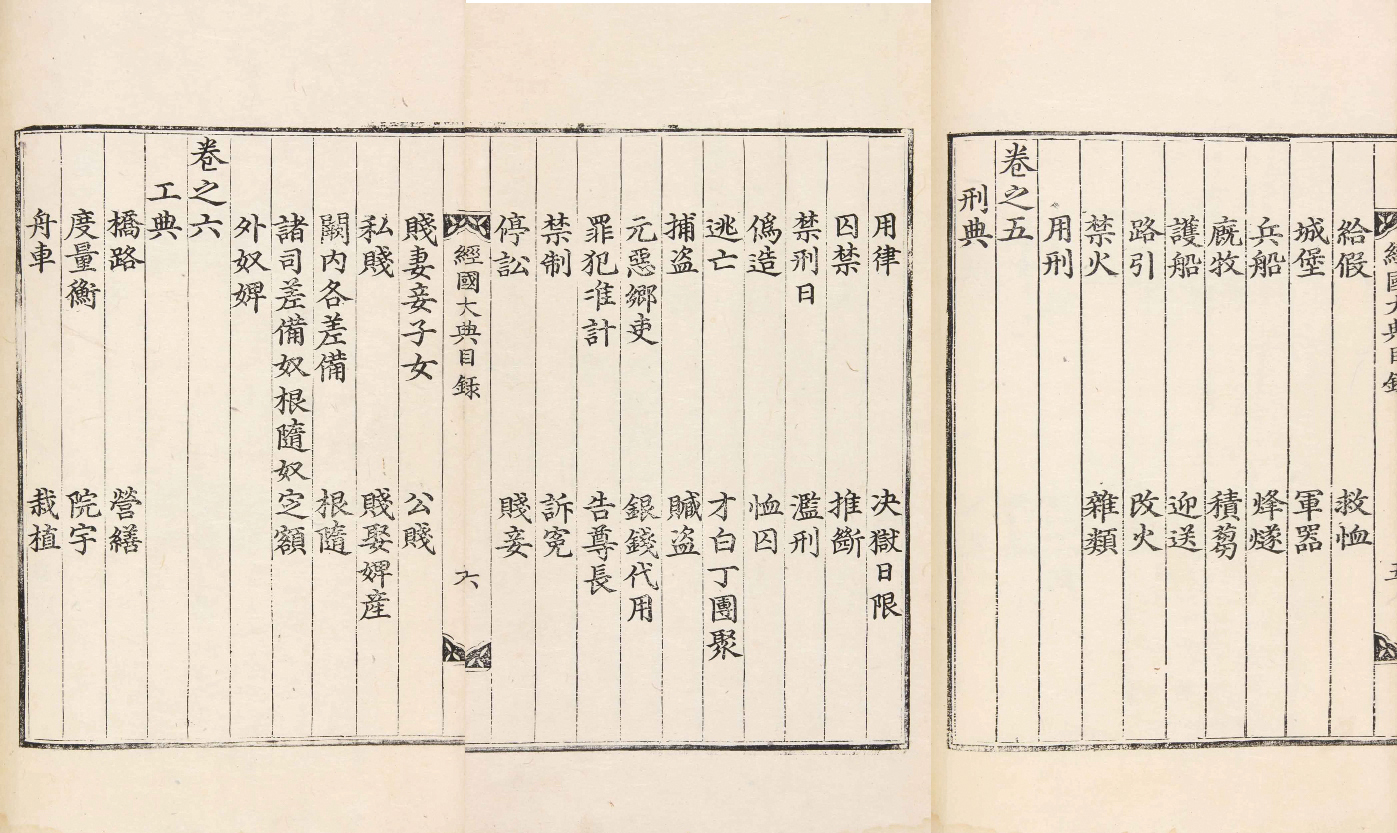 經國大典目錄 五
給假 救恤
城堡 軍器
兵船 烽燧
廐牧 積芻
護船 迎送
路引 改火
禁火 雜類
用刑
卷之五
刑典
用律 决獄日限
囚禁 推斷
禁刑日 濫刑
僞造 恤囚
逃亡 才白丁團聚
捕盗 贓盗
元惡鄉吏 銀錢代用
罪犯准計 告尊長
禁制 訴寃
停訟 賤妾
經國大典目錄 六
賤妻妾子女 公賤
私賤 賤娶婢産
闕内各差備 根隨
諸司差備奴根隨奴定額
外奴婢
卷之六
工典
橋路 營繕
度量衡 院宇
舟車 栽植